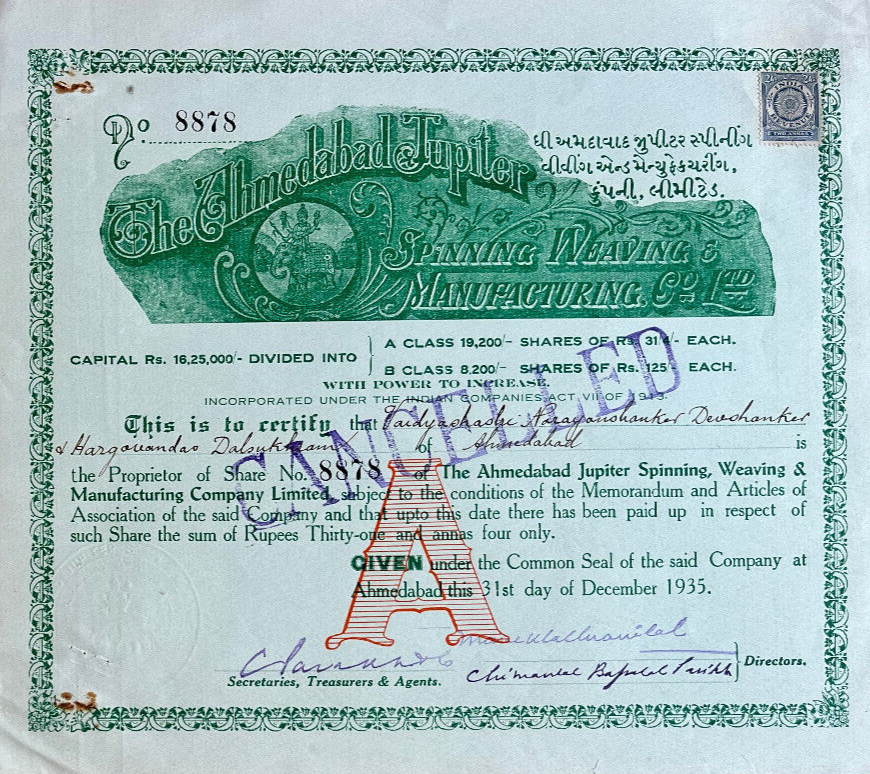 No 8878
The Ahmedabad Jupiter
Spinning Weaving &
Manufacturing, Co Ltd
ધી અમદાવાદ જુપીટર સ્પીનીંગ
વીવીંગ એન્ડ મૈન્યુફેકચરીંગ,
કુંપની, લીમીટેડ.
2As 2As
INDIA
REVENUE
TWO ANNAS
CAPITAL Rs. 16,25,000/- DIVIDED INTO
A CLASS 19,200/- SHARES OF Rs. 31/4/- EACH.
B CLASS 8,200/- SHARES OF Rs. 125/- EACH.
WITH POWER TO INCREASE.
INCORPORATED UNDER THE INDIAN COMPANIES ACT VII OF 1913.
CANCELLED
This is to certify that Vaidyashastri Narayanshanker Devshanker
& Hargovandas Dalsukhram of Ahmedabad is
the Proprietor of Share No. 8878 of The Ahmedabad Jupiter Spinning, Weaving &
Manufacturing Company Limited, subject to the conditions of the Memorandum and Articles of
Association of the said Company and that upto this date there has been paid up in respect of
such Share the sum of Rupees Thirty-one and annas four only.
GIVEN under the Common Seal of the said Company at
Ahmedabad this 31st day of December 1935.
A
Chimanlal Bapulal Parikh
Directors.
Secretaries, Treasurers & Agents.